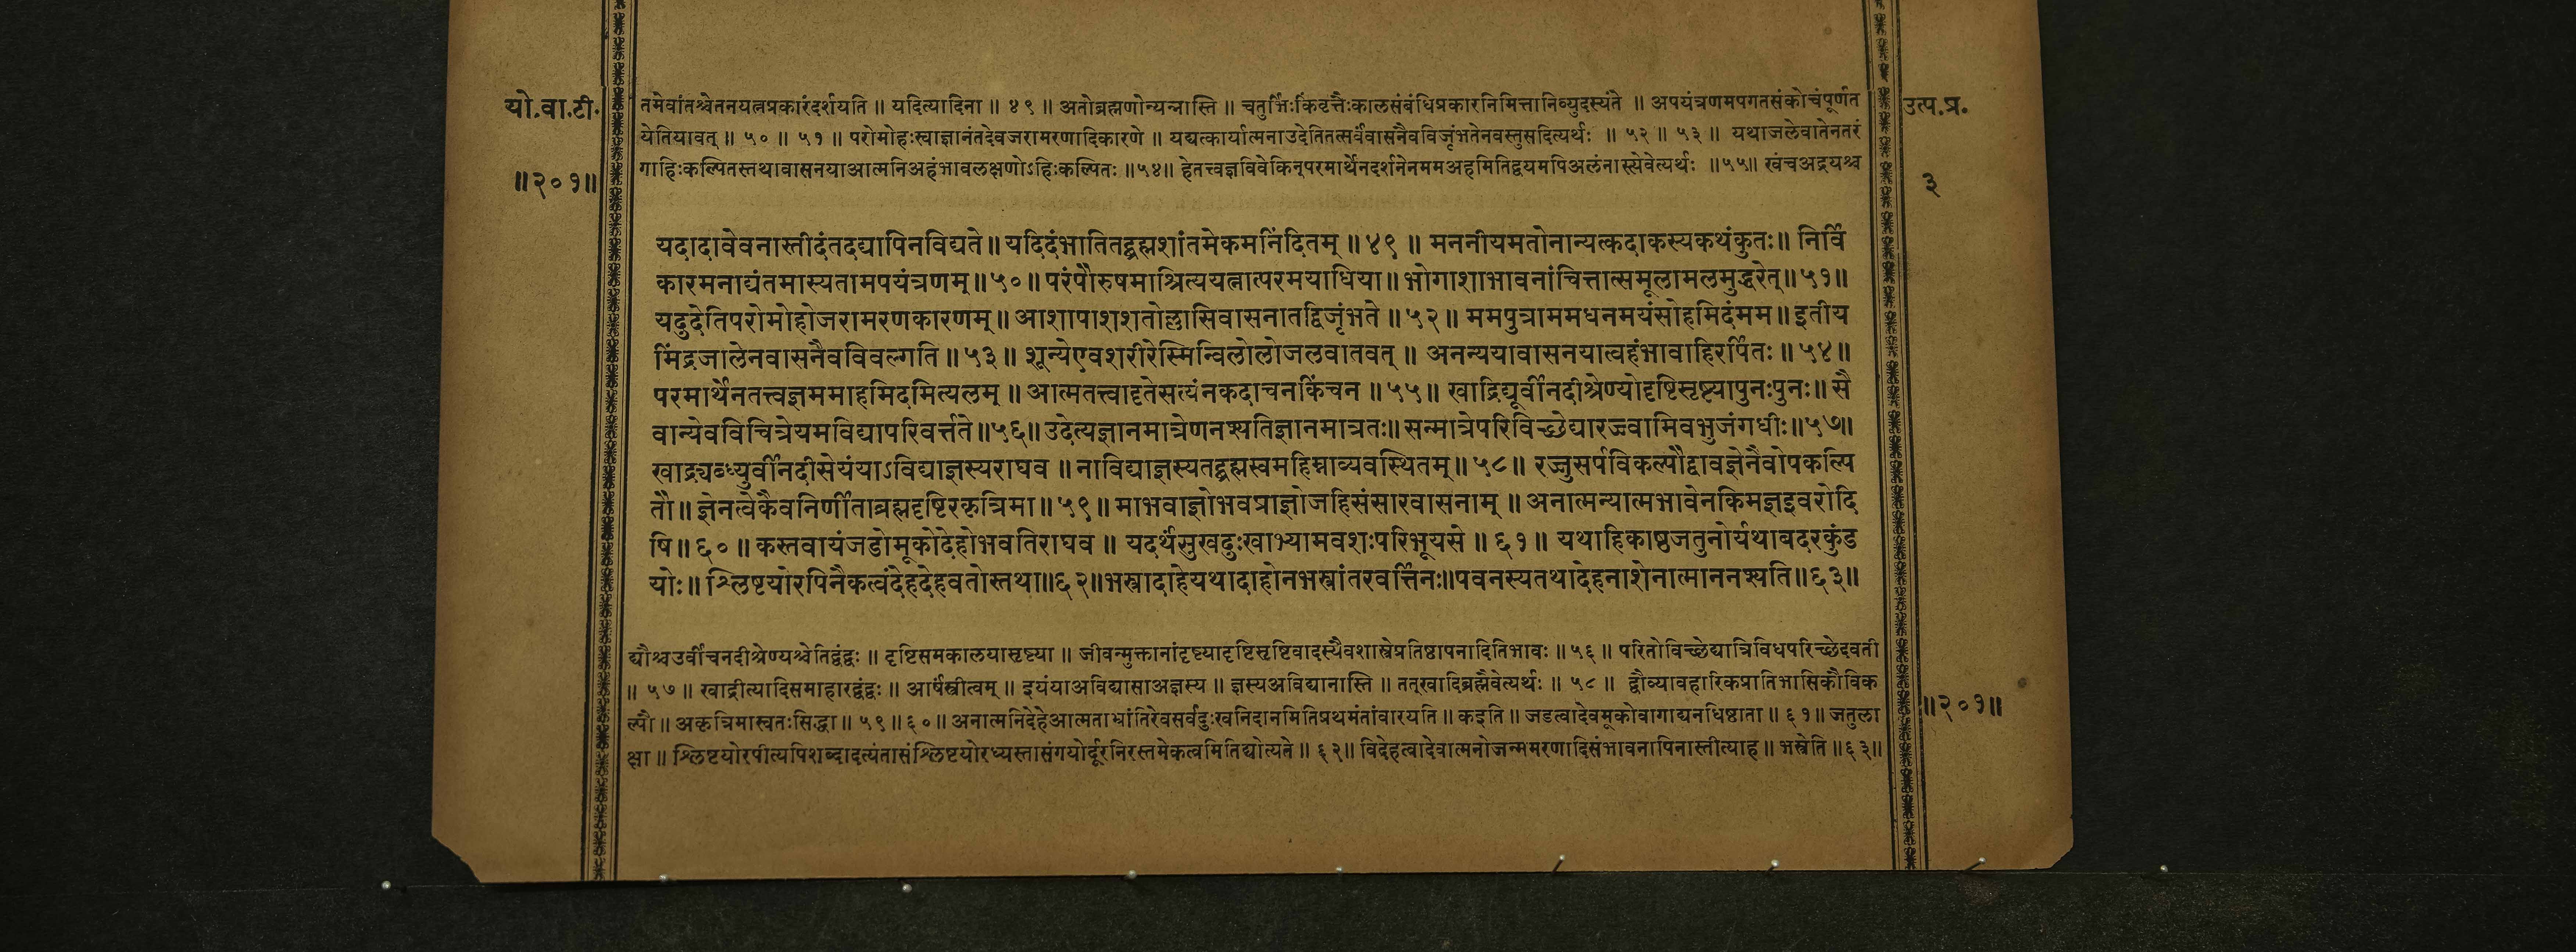 यो.वा.टी.
॥२०१॥
तमेवांतश्चेतनयत्नप्रकारंदर्शयति ॥ यदित्यादिना ॥ ४९ ॥ अतोब्रह्मणोन्यन्नास्ति ॥ चतुर्भिःकिंवृत्तैःकालसंबंधिप्रकारनिमित्तानिव्युदस्यंते ॥ अपयंत्रणमपगतसंकोचंपूर्णत
येतियावत् ॥ ५० ॥ ५१ ॥ परोमोहःस्वाज्ञानंतदेवजरामरणादिकारणे ॥ यद्यत्कार्यात्मनाउदेतितत्सर्वंवासनैवविजृंभतेनवस्तुसदित्यर्थः ॥ ५२ ॥ ५३ ॥ यथाजलेवातेनतरं
गाहिःकल्पितस्तथावासनयाआत्मनिअहंभावलक्षणोऽहिःकल्पितः ॥५४॥ हेतत्त्वज्ञविवेकिन्परमार्थेनदर्शनेनममअहमितिद्वयमपिअलंनास्त्येवेत्यर्थः ॥५५॥ खंचअद्रयश्च
उत्प.प्र.
३
यदादावेवनास्तीदंतदद्यापिनविद्यते॥ यदिदंभातितद्ब्रह्मशांतमेकमनिंदितम् ॥ ४९ ॥ मननीयमतोनान्यत्कदाकस्यकथंकुतः॥ निर्वि
कारमनाद्यंतमास्यतामपयंत्रणम्॥ ५० ॥ परंपौरुषमाश्रित्ययत्नात्परमयाधिया॥ भोगाशाभावनांचित्तात्समूलामलमुद्धरेत्॥ ५१॥
यदुदेतिपरोमोहोजरामरणकारणम्॥ आशापाशशतोल्लासिवासनातद्विजृंभते ॥ ५२॥ ममपुत्राममधनमयंसोहमिदंमम॥ इतीय
मिंद्रजालेनवासनैवविवल्गति ॥ ५३॥ शून्येएवशरीरेस्मिन्विलोलोजलवातवत् ॥ अनन्ययावासनयात्वहंभावाहिरर्पितः ॥ ५४॥
परमार्थेनतत्त्वज्ञममाहमिदमित्यलम् ॥ आत्मतत्त्वादृतेसत्यंनकदाचनकिंचन ॥ ५५॥ खाद्रिद्यूर्वीनदीश्रेण्योदृष्टिसृष्ट्यापुनःपुनः॥ सै
वान्येवविचित्रेयमविद्यापरिवर्त्तते॥५६॥ उदेत्यज्ञानमात्रेणनश्यतिज्ञानमात्रतः॥ सन्मात्रेपरिविच्छेद्यारज्ज्वामिवभुजंगधीः॥५७॥
खाद्र्यब्ध्युर्वीनदीसेयंयाऽविद्याज्ञस्यराघव ॥ नाविद्याज्ञस्यतद्ब्रह्मस्वमहिम्नाव्यवस्थितम्॥ ५८॥ रज्जुसर्पविकल्पौद्वावज्ञेनैवोपकल्पि
तौ॥ ज्ञेनत्वेकैवनिर्णीताब्रह्मदृष्टिरकृत्रिमा॥ ५९॥ माभवाज्ञोभवप्राज्ञोजहिसंसारवासनाम् ॥ अनात्मन्यात्मभावेनकिमज्ञइवरोदि
षि॥ ६० ॥ कस्तवायंजडोमूकोदेहोभवतिराघव ॥ यदर्थंसुखदुःखाभ्यामवशःपरिभूयसे ॥ ६१ ॥ यथाहिकाष्ठजतुनोर्यथाबदरकुंड
योः॥ श्लिष्टयोरपिनैकत्वंदेहदेहवतोस्तथा॥६२॥भस्त्रादाहेयथादाहोनभस्त्रांतरवर्त्तिनः॥पवनस्यतथादेहनाशेनात्माननश्यति॥६३॥
द्यौश्चउर्वीचनदीश्रेण्यश्चेतिद्वंद्वः ॥ दृष्टिसमकालयासृष्ट्या ॥ जीवन्मुक्तानांदृष्ट्यादृष्टिसृष्टिवादस्यैवशास्त्रेप्रतिष्ठापनादितिभावः ॥ ५६ ॥ परितोविच्छेद्यात्रिविधपरिच्छेदवती
॥ ५७ ॥ खाद्रीत्यादिसमाहारद्वंद्वः ॥ आर्षंस्त्रीत्वम् ॥ इयंयाअविद्यासाअज्ञस्य ॥ ज्ञस्यअविद्यानास्ति ॥ तत्खादिब्रह्मैवेत्यर्थः ॥ ५८ ॥ द्वौव्यावहारिकप्रातिभासिकौविक
ल्पौ ॥ अकृत्रिमास्वतःसिद्धा ॥ ५९ ॥ ६० ॥ अनात्मनिदेहेआत्मताभ्रांतिरेवसर्वदुःखनिदानमितिप्रथमंतांवारयति ॥ कइति ॥ जडत्वादेवमूकोवागाद्यनधिष्ठाता ॥ ६१ ॥ जतुला
क्षा ॥ श्लिष्टयोरपीत्यपिशब्दादत्यंतासंश्लिष्टयोरध्यस्तासंगयोर्दूरनिरस्तमेकत्वमितिद्योत्यते ॥ ६२॥ विदेहत्वादेवात्मनोजन्ममरणादिसंभावनापिनास्तीत्याह ॥ भस्त्रेति ॥६३॥
॥२०१॥